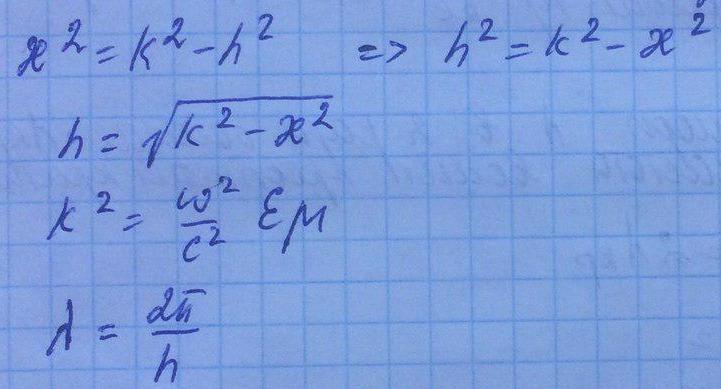 æ² = k² - h² => h² = k² - æ²
h = √(k² - æ²)
k² = ω²/c² εμ
λ = 2π/h